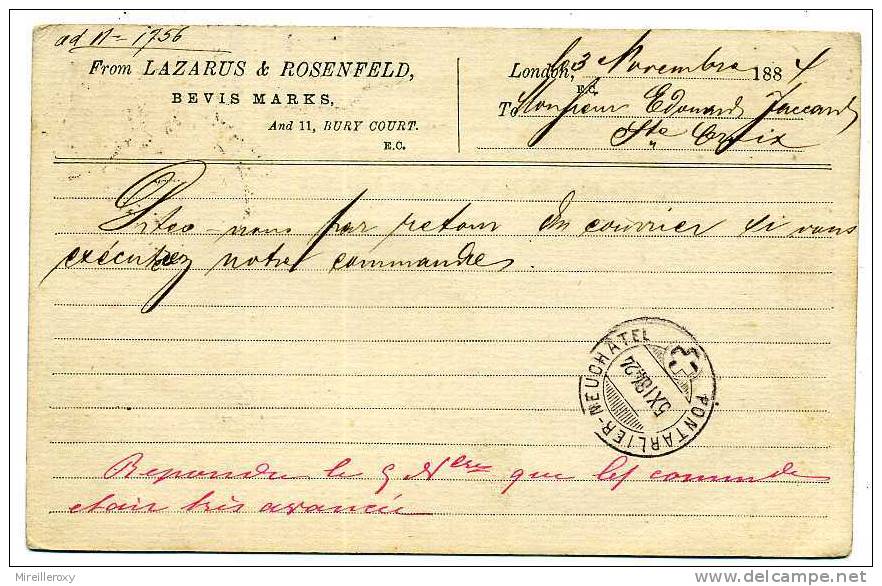 ad Nº 1756
From LAZARUS & ROSENFELD,
BEVIS MARKS,
And 11, BURY COURT.
E.C.
London, 3 Novembre 1884
E.C.
To Monsieur Edouard Jaccard
Ste Croix
Dites-nous par retour du courrier si vous
exécutez notre commande.
PONTARLIER-NEUCHATEL
5 XI 84 24
Repondu le 5 Nbre que les commde
etait très avancée
Mirelleroxy
delcampe.net